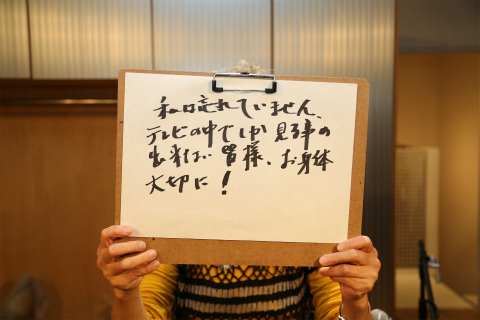 私は忘れていません、
テレビの中でしか見る事の
出来ない皆様、お身体
大切に！